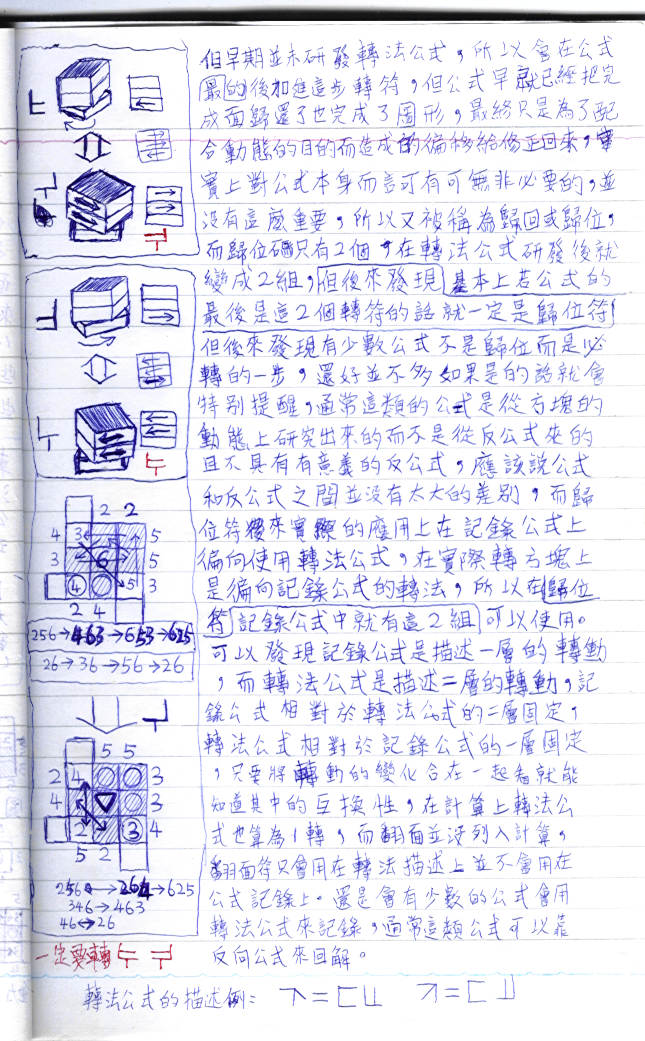 但早期並未研發轉法公式，所以會在公式
最的後加進這步轉符，但公式早就已經把完
成面歸還了也完成了圖形，最終只是為了配
合動態的目的而造成的偏移給修正回來，事
實上對公式本身而言可有可無非必要的，並
沒有這麼重要，所以又被稱為歸回或歸位，
而歸位碼只有2個，在轉法公式研發後就
變成2組，但後來發現基本上若公式的
最後是這2個轉符的話就一定是歸位符
但後來發現有少數公式不是歸位而是必
轉的一步，還好並不多如果是的話就會
特別提醒，通常這類的公式是從方塊的
動態上研究出來的而不是從反公式來的
且不具有有意義的反公式，應該說公式
和反公式之間並沒有太大的差別，而歸
位符後來實際的應用上在記錄公式上
偏向使用轉法公式，在實際轉方塊上
是偏向記錄公式的轉法，所以在歸位
符記錄公式中就有這2組可以使用。
可以發現記錄公式是描述一層的轉動
，而轉法公式是描述二層的轉動，記
錄公式相對於轉法公式的二層固定，
轉法公式相對於記錄公式的一層固定
，只要將轉動的變化合在一起看就能
知道其中的互換性，在計算上轉法公
式也算為1轉，而翻面並沒列入計算，
翻面符只會用在轉法描述上並不會用在
公式記錄上。還是會有少數的公式會用
轉法公式來記錄，通常這類公式可以靠
反向公式來回解。
轉法公式的描述例：
2 2
4 3 5
3 6 5
4 5 3
2 4
256→463→653→625
26→36→56→26
5 5
2 4 3
4 3
2 3 4
5 2
256→264→625
346→463
46↔26
一定要轉